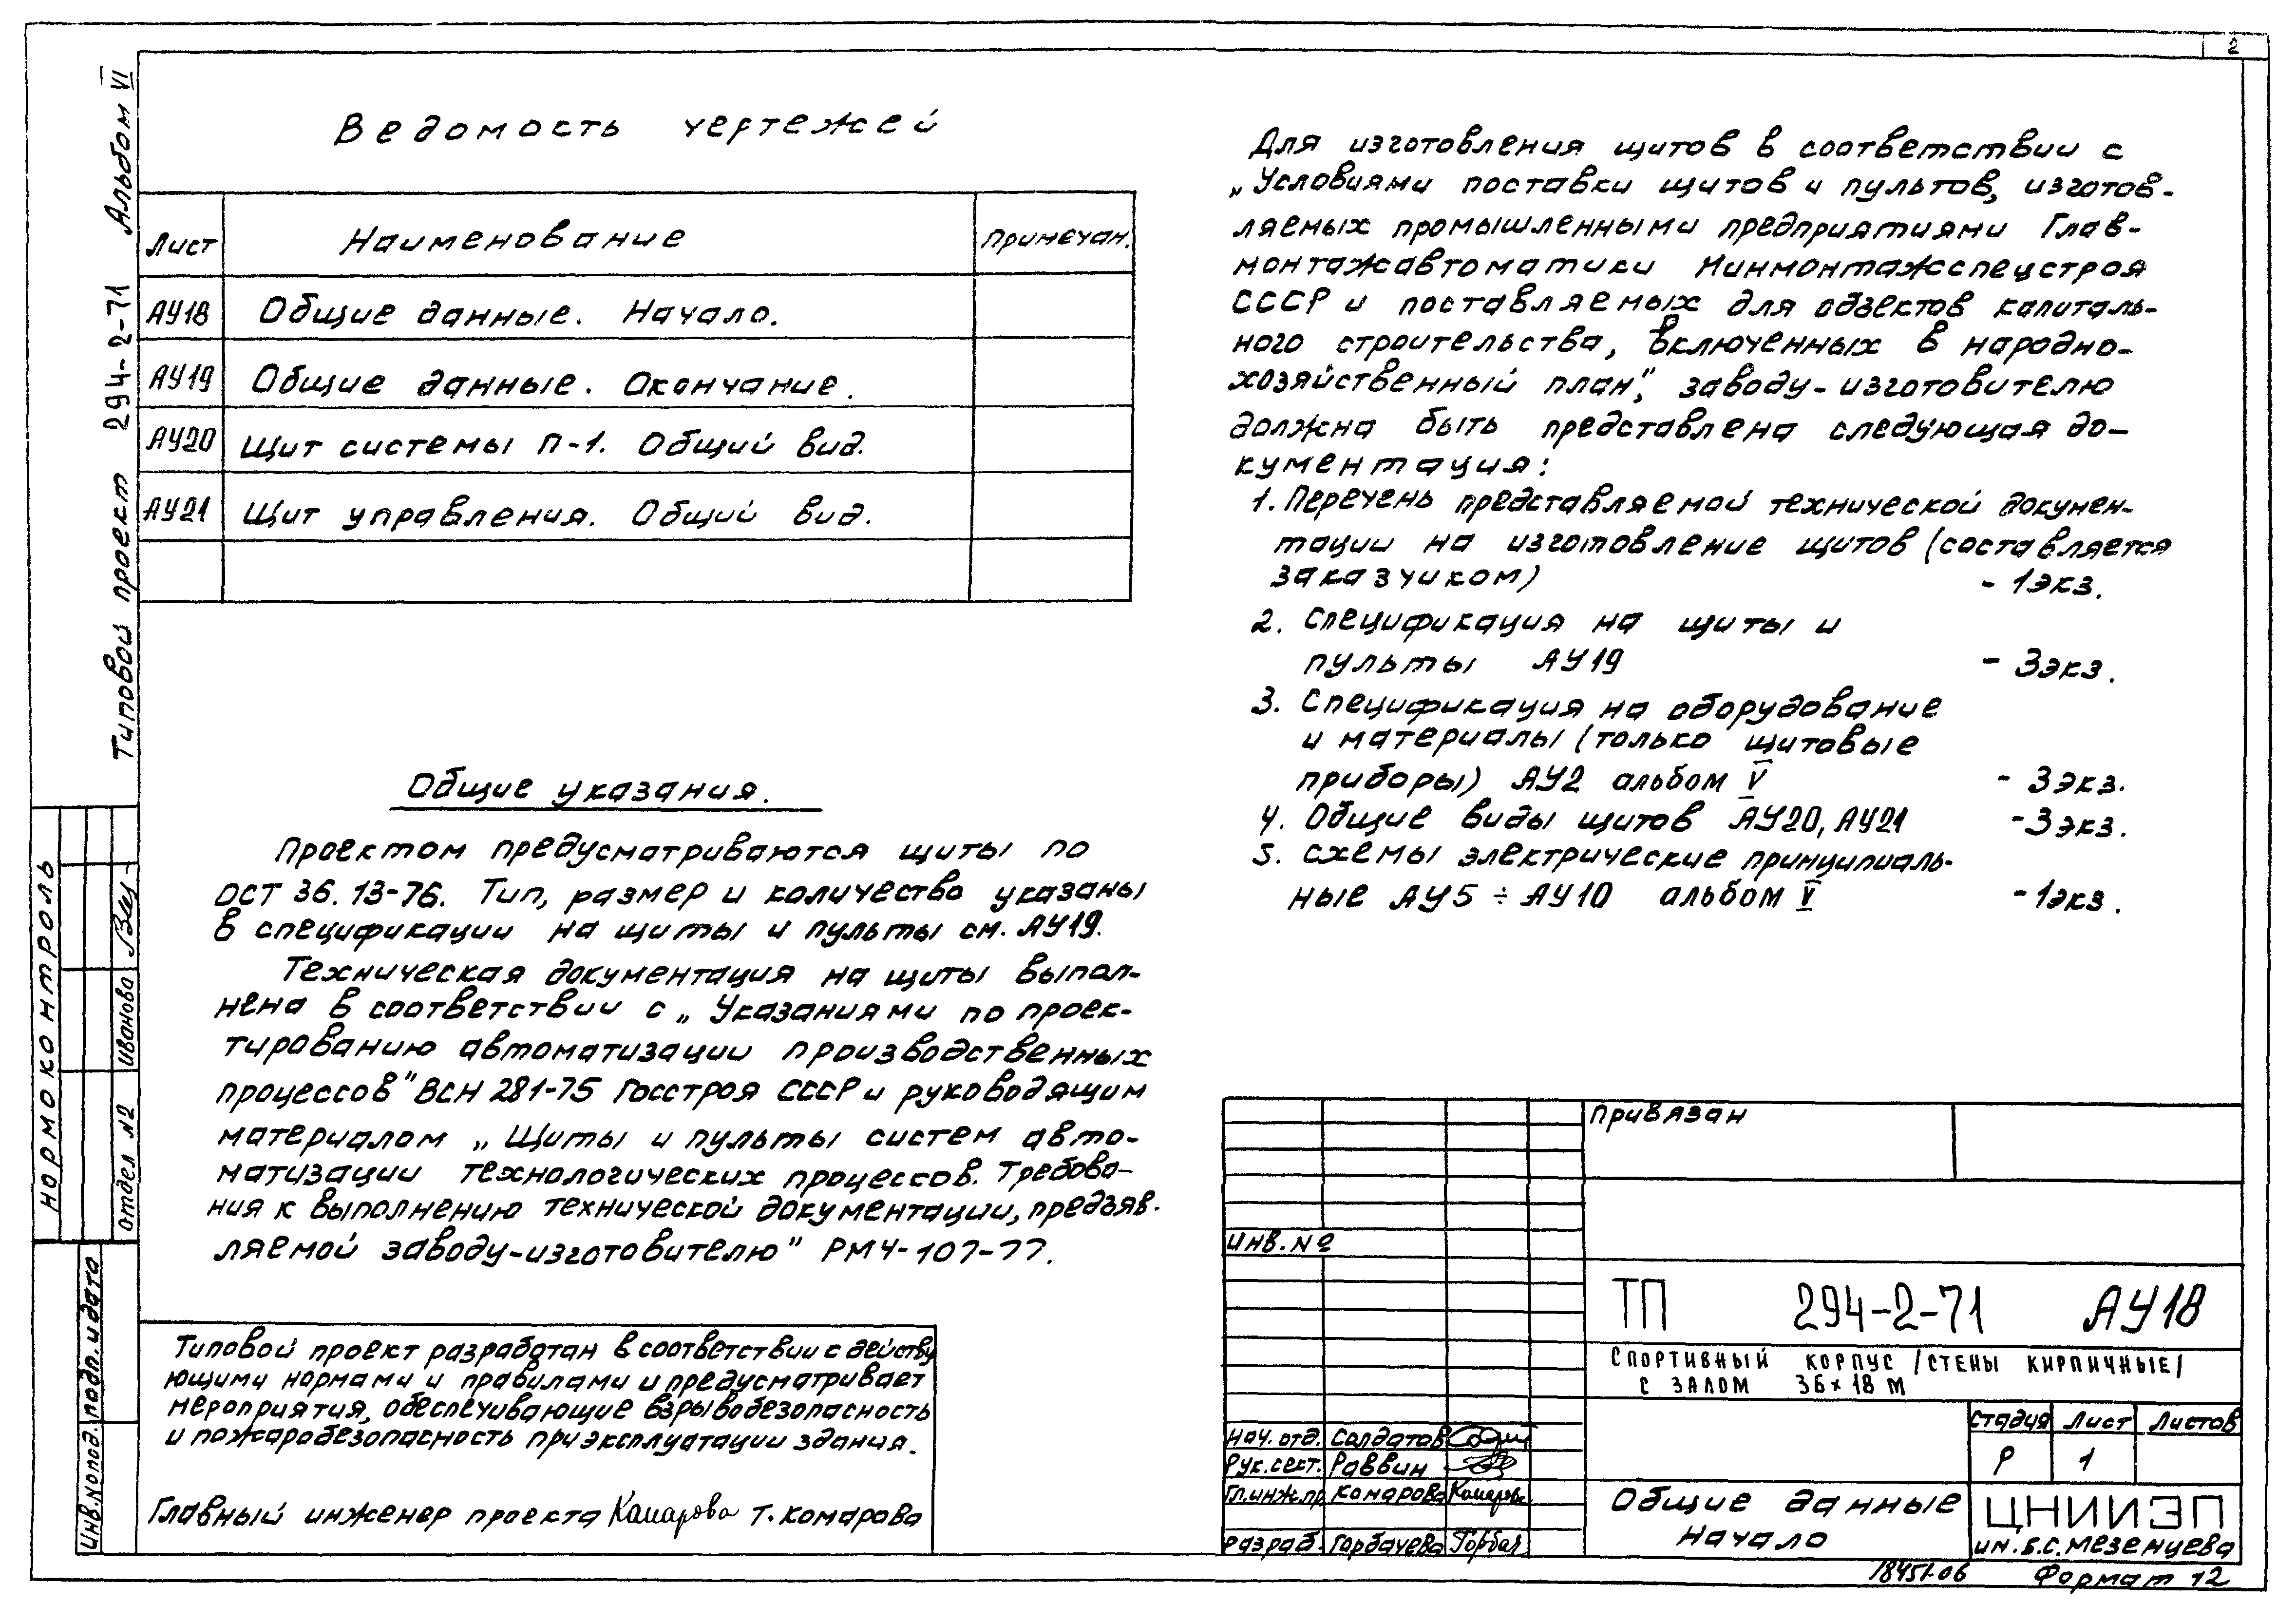 2
Типовой проект 294-2-71 Альбом VI
Ведомость чертежей
Лист Наименование Примечан.
АУ18 Общие данные. Начало.
АУ19 Общие данные. Окончание.
АУ20 Щит системы П-1. Общий вид.
АУ21 Щит управления. Общий вид.
Общие указания.
Проектом предусматриваются щиты по
ОСТ 36.13-76. Тип, размер и количество указаны
в спецификации на щиты и пульты см. АУ19.
Техническая документация на щиты выпол-
нена в соответствии с „Указаниями по проек-
тированию автоматизации производственных
процессов" ВСН 281-75 Госстроя СССР и руководящим
материалом „Щиты и пульты систем авто-
матизации технологических процессов. Требова-
ния к выполнению технической документации, предъяв-
ляемой заводу-изготовителю" РМ4-107-77.
Типовой проект разработан в соответствии с действу
ющими нормами и правилами и предусматривает
мероприятия, обеспечивающие взрывобезопасность
и пожаробезопасность при эксплуатации здания.
Главный инженер проекта Комарова Т. Комарова
Для изготовления щитов в соответствии с
„Условиями поставки щитов и пультов, изготов-
ляемых промышленными предприятиями Глав-
монтажавтоматики Минмонтажспецстроя
СССР и поставляемых для объектов капиталь-
ного строительства, включенных в народно-
хозяйственный план," заводу-изготовителю
должна быть представлена следующая до-
кументация:
1. Перечень представляемой технической докумен-
тации на изготовление щитов (составляется
заказчиком) - 1экз.
2. Спецификация на щиты и
пульты АУ19 - 3экз.
3. Спецификация на оборудование
и материалы (только щитовые
приборы) АУ2 альбом V - 3экз.
4. Общие виды щитов АУ20, АУ21 - 3экз.
5. Схемы электрические принципиаль-
ные АУ5 ÷ АУ10 альбом V - 1экз.
Нормоконтроль
отдел №2 Иванова
Инв.№подл. подп. и дата
Привязан
Инв. №
ТП 294-2-71 АУ18
СПОРТИВНЫЙ КОРПУС /СТЕНЫ КИРПИЧНЫЕ/
С ЗАЛОМ 36×18 М
Стадия Лист Листов
Р 1
Нач. отд. Солдатов
Рук. сект. Раввин
Гл.инж.пр. Комарова Комарова
Разраб. Горбачева Горбач
Общие данные
начало
ЦНИИЭП
им. Б.С. Мезенцева
18451-06 Формат 12